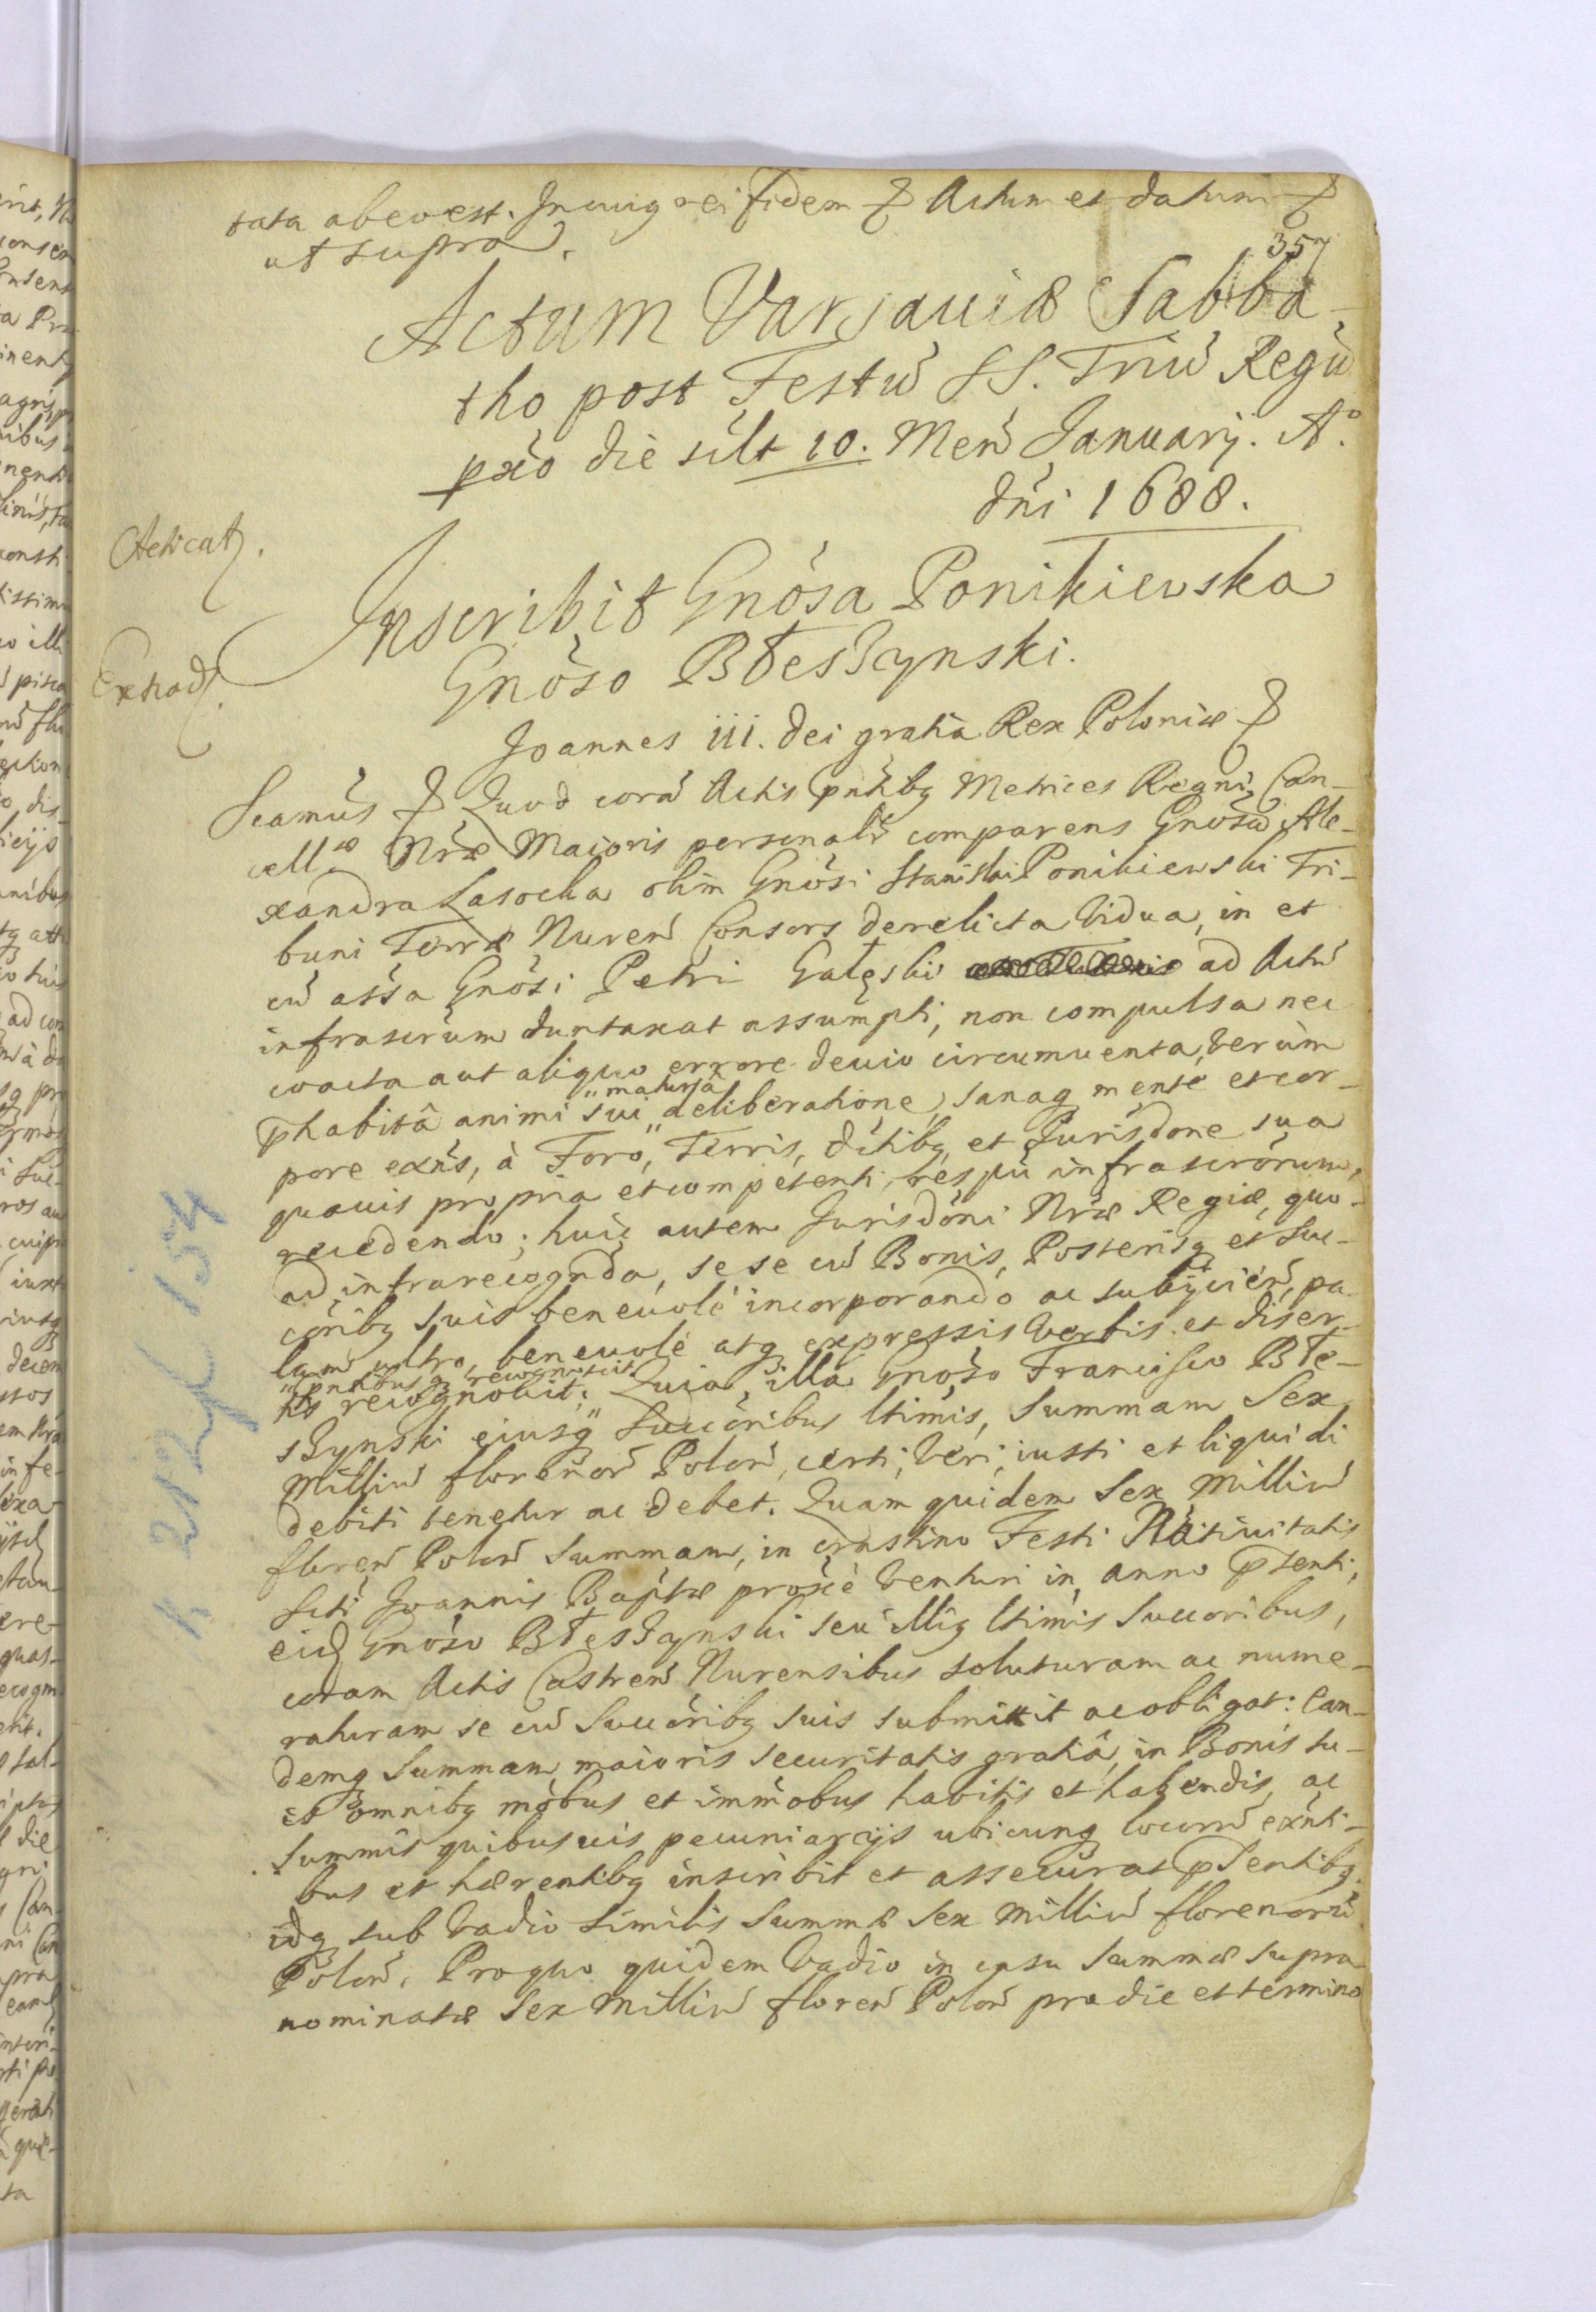 tata abeo est. In cuius rei fidem & Actum et datum &
ut supra.
357
Actum Varsaviæ Sabba-
tho post Festũ SS. Triũ Regũ
pxo die silt 10. Men̄ Januarij. Aº
dn̄i 1688.
Inscribit Gnosa Ponikiewska
Gnoso Błeszynski.
Joannes iii. Dei gratia Rex Poloniæ &
Scamus & Quod corã Actis pn̄tibq Metrices Regni Can-
cellæ Nræ Maioris personalr comparens Gnosa Ale-
xandra Lasocka olim Gnosi Stanislai Ponikiewski Tri-
buni Terræ Nuren̄ Consors derelicta Vidua, in et
cũ assa Gnosi Petri Gałęski ad Actũ
infrascrum duntaxat assumpti, non compulsa nec
coacta aut aliquo errore devio circumventa, verùm
phabitâ animi sui "maturâ" deliberatione, sanaq mente et cor-
pore exn̄s, à Foro, Terris, dctibq, et Jurisdone sua
quavis propria et competenti, respũ infrascrorum,
recedendo; huic autem Jurisdoni Nræ Regiæ, quo
ad infrarecognda, se se cũ Bonis, Posterisq et Suc-
coribq suis benevole incorporando ac subijcien̄, pa-
lam ultro, benevole atq expressis verbis et diser-
tis recognovit, "pntibusq recognoscit" Quia illa Gnoso Francisco Błe-
szynski eiusq Succoribus ltimis, Summam Sex
Milliũ florenor̄ Polon̄, certi, veri, iusti et liquidi
debiti tenetur ac debet. Quam quidem Sex Milliũ
floren̄ Polon̄ Summam, in crastino Festi Nativitatis
Scti Joannis Baptæ proxe venturi in anno psenti,
eid Gnoso Błeszynski seu illiq ltimis Succoribus,
coram Actis Castren̄ Nurensibus soluturam ac nume-
raturam se cũ Succoribq suis submittit ac obligat: Ean-
demq Summam maioris securitatis gratiâ, in Bonis su-
is omnibq mobus et immobus habitis et habendis, ac
summis quibusvis pecuniarijs ubicunq locorũ exn̄ti-
bus et hærentibq inscribit et assecurat psentibq.
idq sub vadio similis Summæ Sex Milliũ florenorũ
Polon̄. Pro quo quidem Vadio in casu Summæ supra
nominatæ Sex Milliũ floren̄ Polon̄ pro die et termino
Acticat.
Extrad.